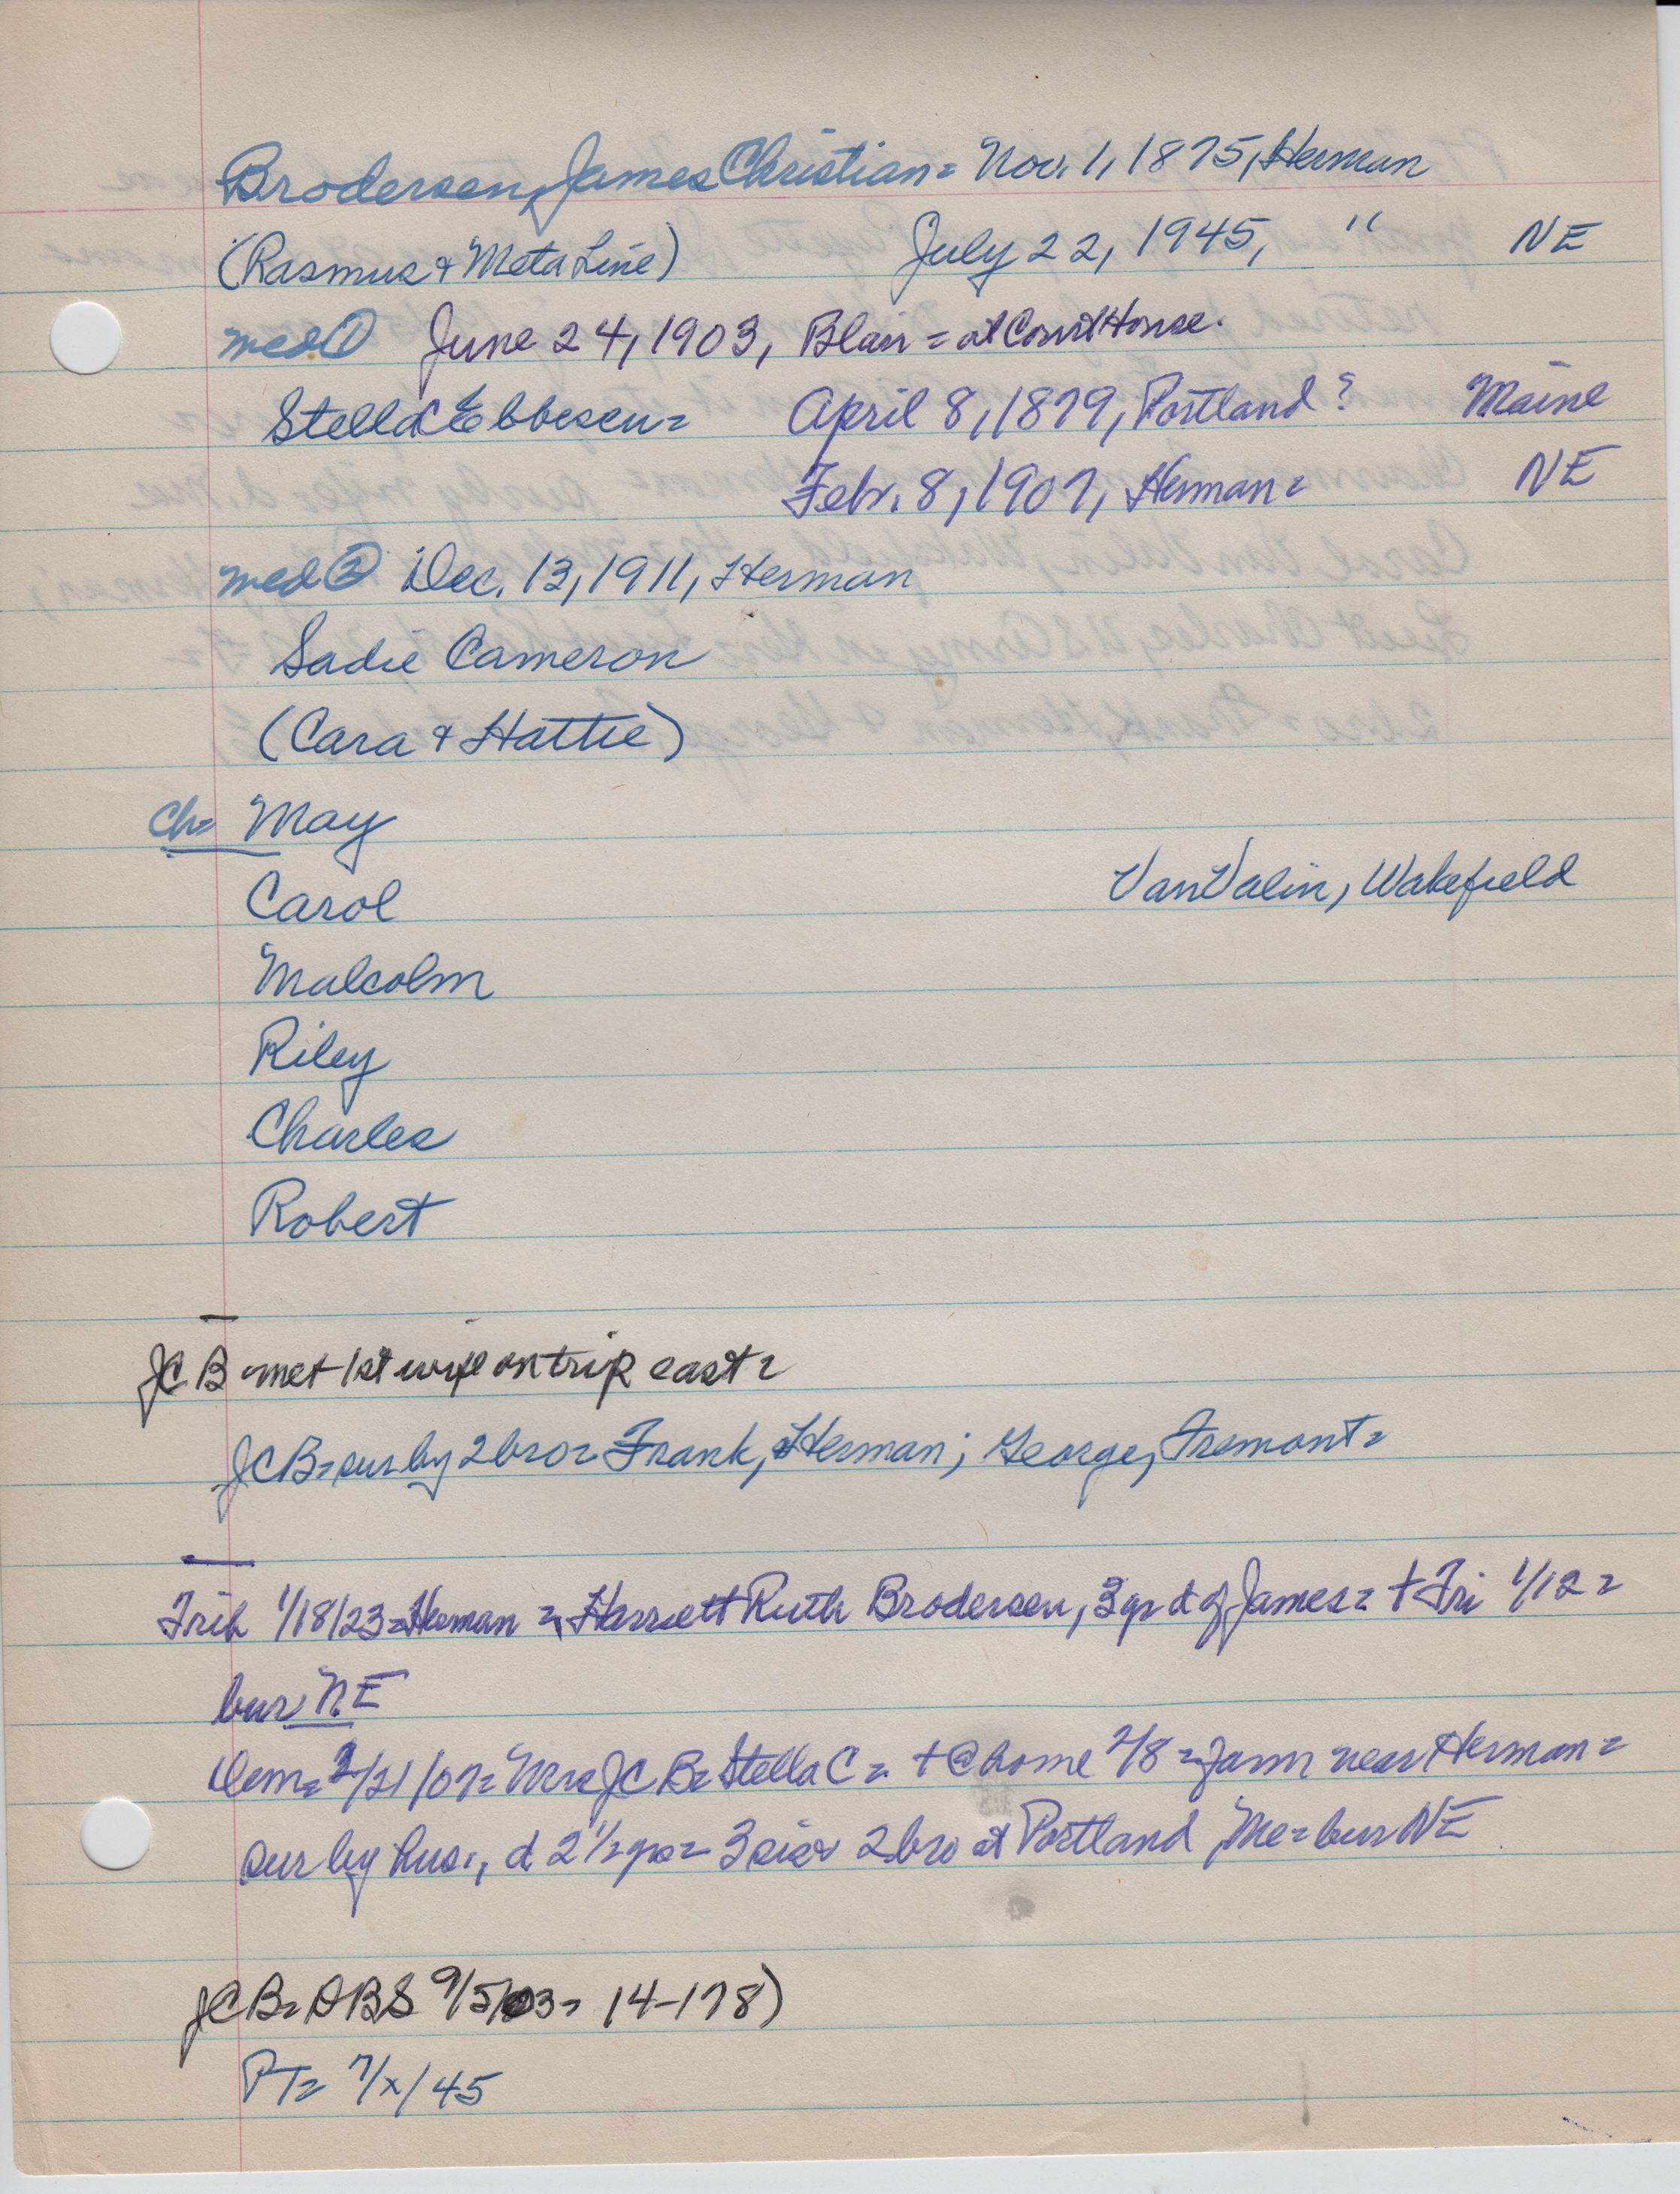 Brodersen, James Christian = Nov. 1, 1875, Herman
(Rasmus & Meta Line) July 22, 1945, " NE
med ① June 24, 1903, Blair = at Court House.
Stella C Ebbesen = April 8, 1879, Portland? Maine
Febr. 8, 1907, Herman = NE
med ② Dec. 13, 1911, Herman
Sadie Cameron
(Cara & Hattie)
Ch = May
Carol VanValin, Wakefield
Malcolm
Riley
Charles
Robert
JCB met 1st wife on trip east =
JCB = sur by 2 bro = Frank, Herman; George, Fremont =
Trib 1/18/23 = Herman = Harriett Ruth Brodersen, 3 yr d of James = + Fri 1/12 =
bur NE
Dem = 2/21/07 = Mrs JCB = Stella C = + @ home 2/8 = farm near Herman =
sur by hus., d 2 1/2 yrs = 3 sis & 2 bro at Portland, Me = bur NE
JCB = DBS 9/5/03 = 14-178)
PT = 7/x/45